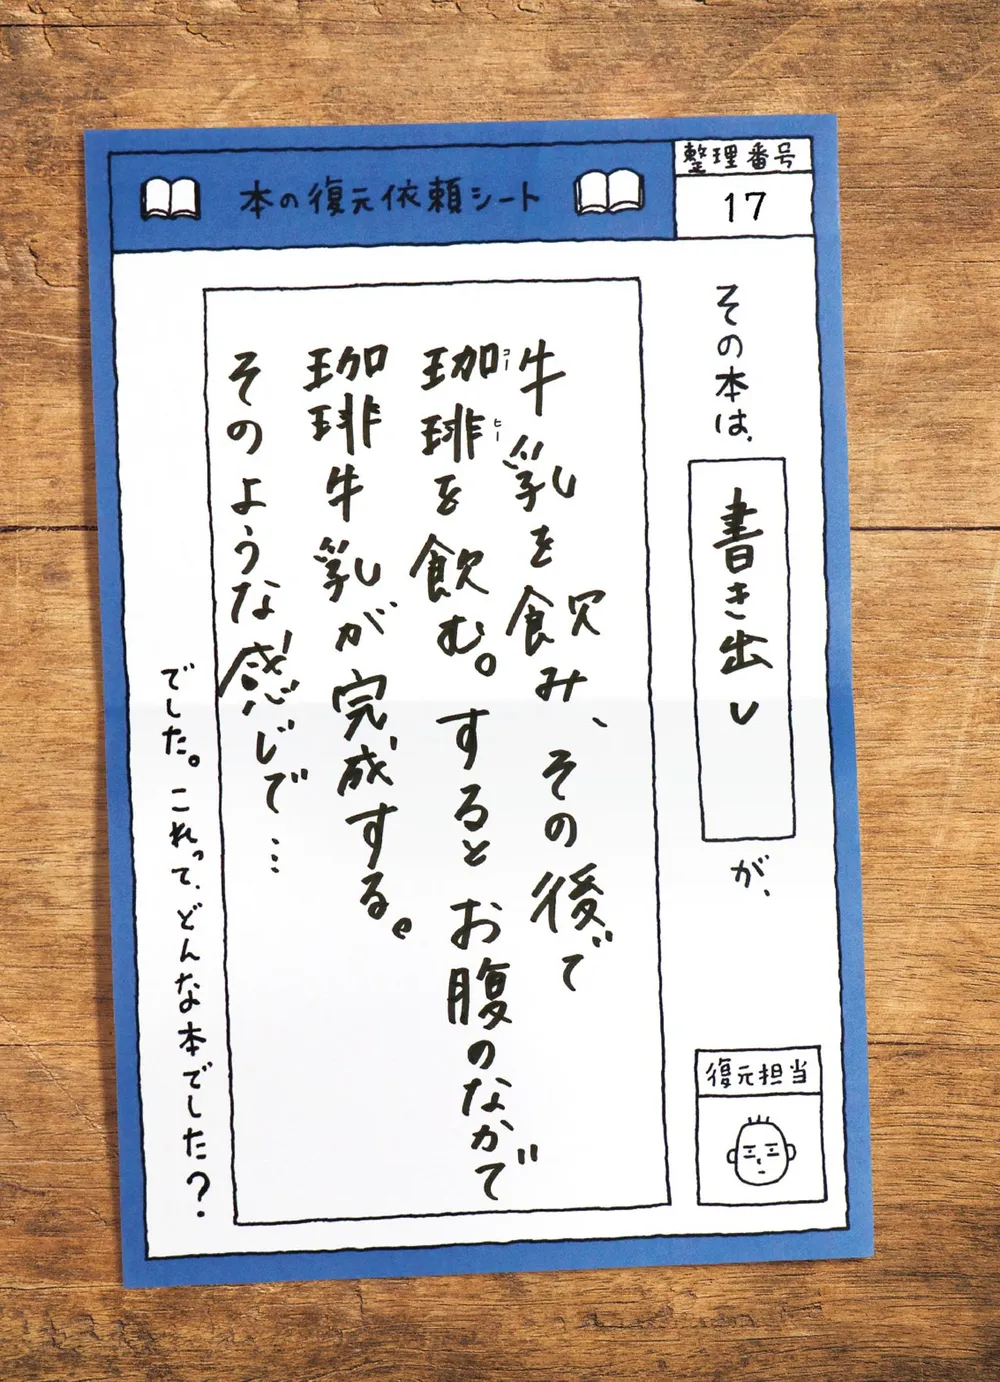 本の復元依頼シート
整理番号
17
その本は、
書き出し
が、
牛乳を飲み、その後で
珈琲を飲む。するとお腹のなかで
コーヒー
珈琲牛乳が完成する。
そのような感じで…
でした。これって、どんな本でした？
復元担当